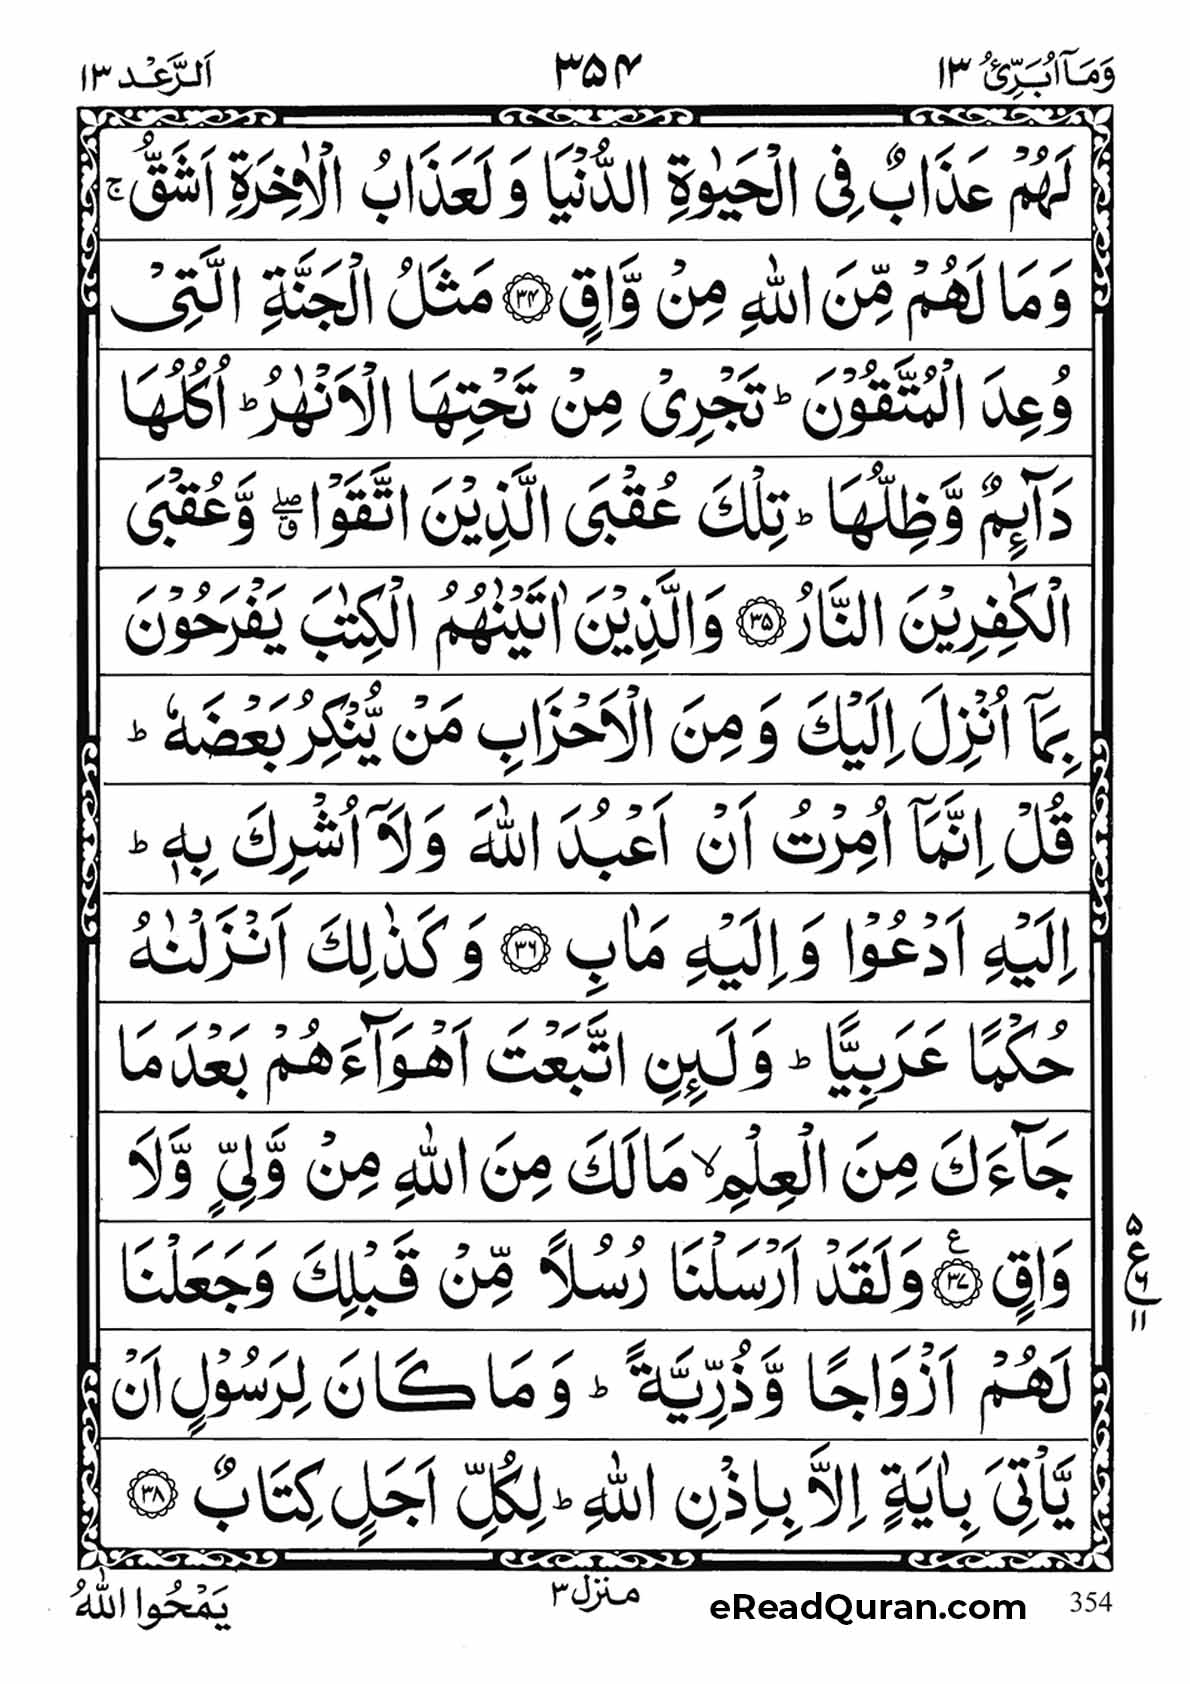 وَمَآ اُبَرِّئُ ١٣ ٣٥٤ اَلرَّعْد ١٣
لَهُمْ عَذَابٌ فِى الْحَيٰوةِ الدُّنْيَا وَ لَعَذَابُ الْاٰخِرَةِ اَشَقُّ ۚ
وَ مَا لَهُمْ مِّنَ اللّٰهِ مِنْ وَّاقٍ ﴿٣٤﴾ مَثَلُ الْجَنَّةِ الَّتِىْ
وُعِدَ الْمُتَّقُوْنَ ؕ تَجْرِىْ مِنْ تَحْتِهَا الْاَنْهٰرُ ؕ اُكُلُهَا
دَآئِمٌ وَّظِلُّهَا ؕ تِلْكَ عُقْبَى الَّذِيْنَ اتَّقَوْا ۖق وَّعُقْبَى
الْكٰفِرِيْنَ النَّارُ ﴿٣٥﴾ وَالَّذِيْنَ اٰتَيْنٰهُمُ الْكِتٰبَ يَفْرَحُوْنَ
بِمَآ اُنْزِلَ اِلَيْكَ وَ مِنَ الْاَحْزَابِ مَنْ يُّنْكِرُ بَعْضَهٗ ؕ
قُلْ اِنَّمَآ اُمِرْتُ اَنْ اَعْبُدَ اللّٰهَ وَلَآ اُشْرِكَ بِهٖ ؕ
اِلَيْهِ اَدْعُوْا وَ اِلَيْهِ مَاٰبِ ﴿٣٦﴾ وَ كَذٰلِكَ اَنْزَلْنٰهُ
حُكْمًا عَرَبِيًّا ؕ وَ لَئِنِ اتَّبَعْتَ اَهْوَآءَهُمْ بَعْدَ مَا
جَآءَكَ مِنَ الْعِلْمِ ۙ مَا لَكَ مِنَ اللّٰهِ مِنْ وَّلِىٍّ وَّلَا
وَاقٍ ﴿٣٧﴾ ع وَلَقَدْ اَرْسَلْنَا رُسُلًا مِّنْ قَبْلِكَ وَجَعَلْنَا
٥
ع ٦
١١
لَهُمْ اَزْوَاجًا وَّذُرِّيَّةً ؕ وَ مَا كَانَ لِرَسُوْلٍ اَنْ
يَّاْتِىَ بِاٰيَةٍ اِلَّا بِاِذْنِ اللّٰهِ ؕ لِكُلِّ اَجَلٍ كِتَابٌ ﴿٣٨﴾
354 eReadQuran.com منزل ٣ يَمْحُوا اللّٰهُ